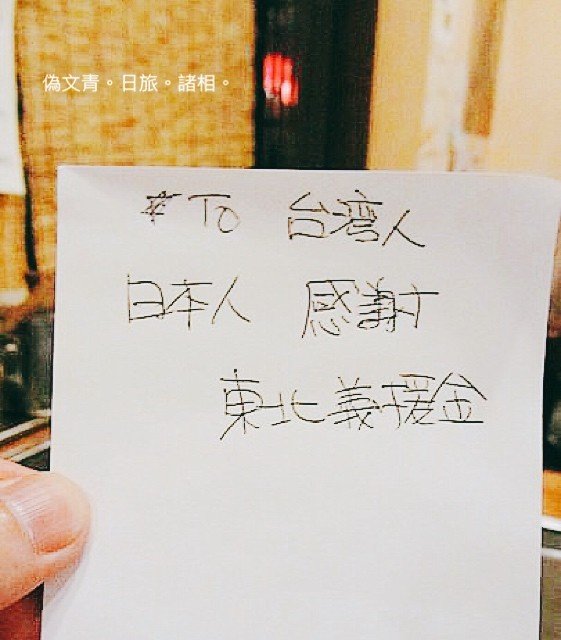 偽文青。日旅。諸相。
# To 台湾人
日本人 感謝
東北義援金